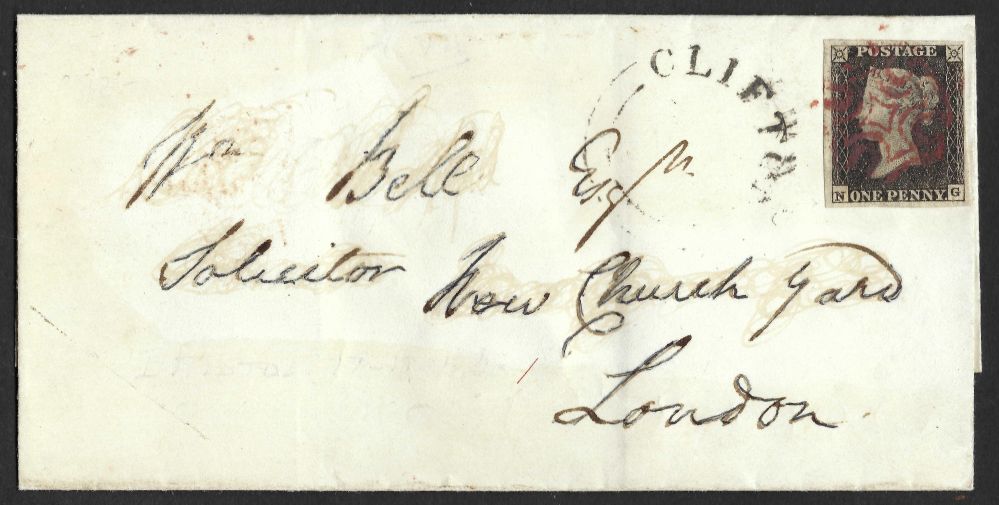 POSTAGE
CLIFTON
N ONE PENNY G
Wm Bell Esqr
Solicitor New Church Yard
London